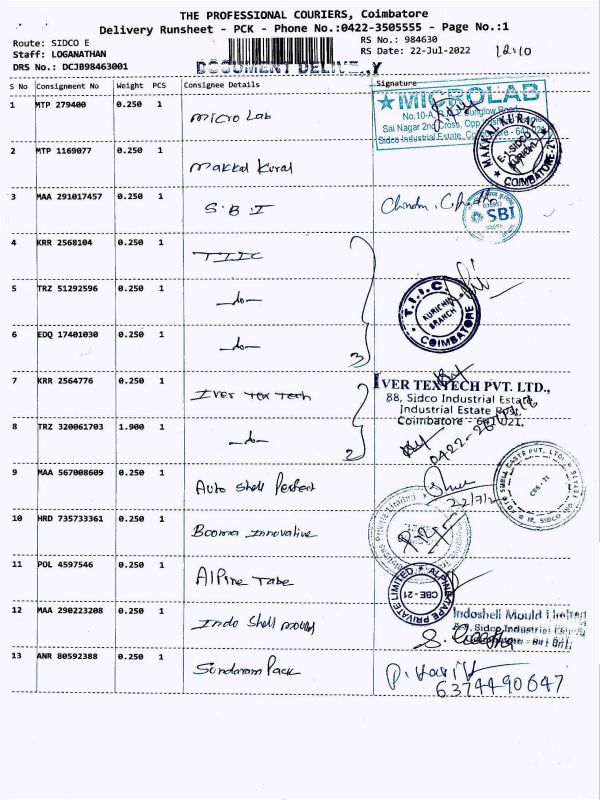 THE PROFESSIONAL COURIERS, Coimbatore
Delivery Runsheet - PCK - Phone No.:0422-3505555 - Page No.:1
Route: SIDCO E
RS No.: 984630
Staff: LOGANATHAN
RS Date: 22-Jul-2022
12:10
DRS No.: DCJB98463001
DOCUMENT DELIVERY
S No Consignment No Weight PCS Consignee Details Signature
1 MTP 279400 0.250 1 Micro Lab
MICROLAB
Sai Nagar 2nd Cross, Opp.
Sidco Industrial Estate,
2 MTP 1169077 0.250 1 Makkal Kural
MAKKAL KURAL
E-1, SIDCO
KURICHI
COIMBATORE-21
3 MAA 291017457 0.250 1 S.B.I
SBI
4 KRR 2568104 0.250 1 TIIC
5 TRZ 51292596 0.250 1 -do-
T.I.I.C.
KURICHI
BRANCH
COIMBATORE
6 EDQ 17401030 0.250 1 -do-
3
7 KRR 2564776 0.250 1 Iver Tex Tech
IVER TEXTECH PVT. LTD.,
88, Sidco Industrial Estate
Industrial Estate Post,
Coimbatore - 641 021.
8 TRZ 320061703 1.900 1 -do-
2
9 MAA 567008609 0.250 1 Auto Shell Perfect
CBE - 21
22/7/2
10 HRD 735733361 0.250 1 Booma Innovative
11 POL 4597546 0.250 1 Alpine Tape
ALPINE TAPE PRIVATE LIMITED
CBE - 21
12 MAA 290223208 0.250 1 Indo Shell mould
Indoshell Mould Limited
Sidco Industrial
13 ANR 80592388 0.250 1 Sundaram Pack
6374490647